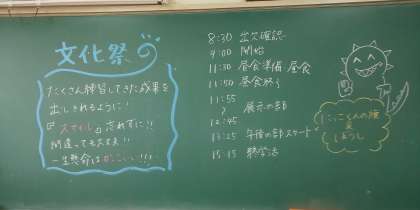 文化祭
たくさん練習してきた成果を
出しきれるように!
『スマイル』忘れずに!!
間違っても大丈夫!!
一生懸命はかっこいい!!!
8:30 出欠確認
9:00 開始
11:30 昼食準備・昼食
11:50 昼食終り
11:55
〜 展示の部
12:45
13:25 午後の部スタート
15:15 終学活